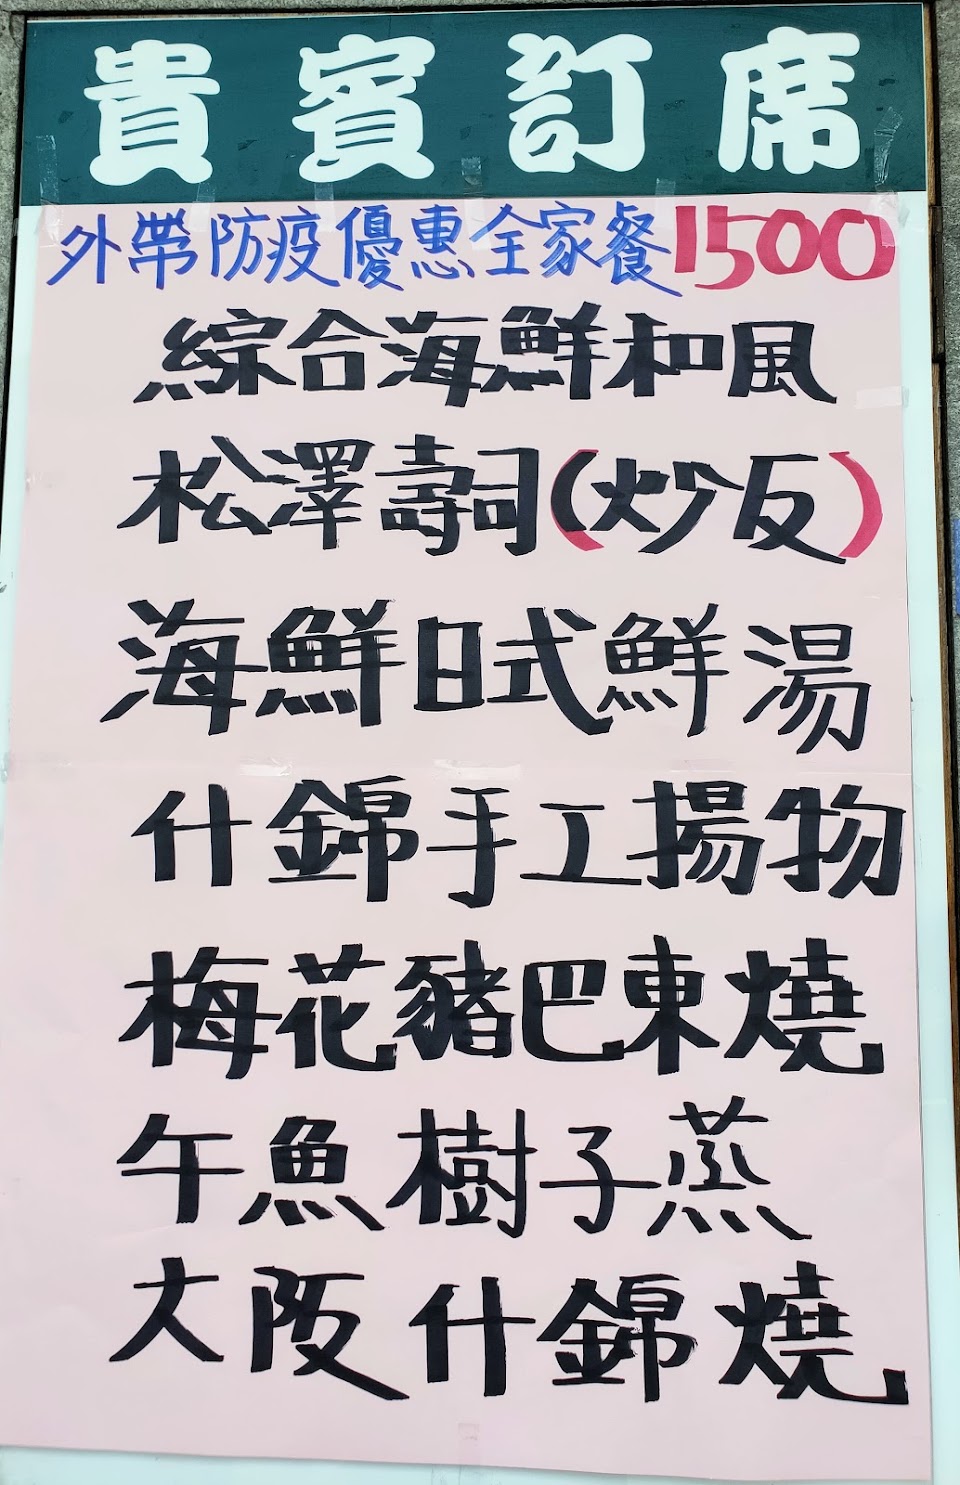 貴賓訂席
外帶防疫優惠全家餐1500
綜合海鮮和風
松澤壽司(炒反)
海鮮日式鮮湯
什錦手工揚物
梅花豬巴東燒
午魚樹子蒸
大阪什錦燒